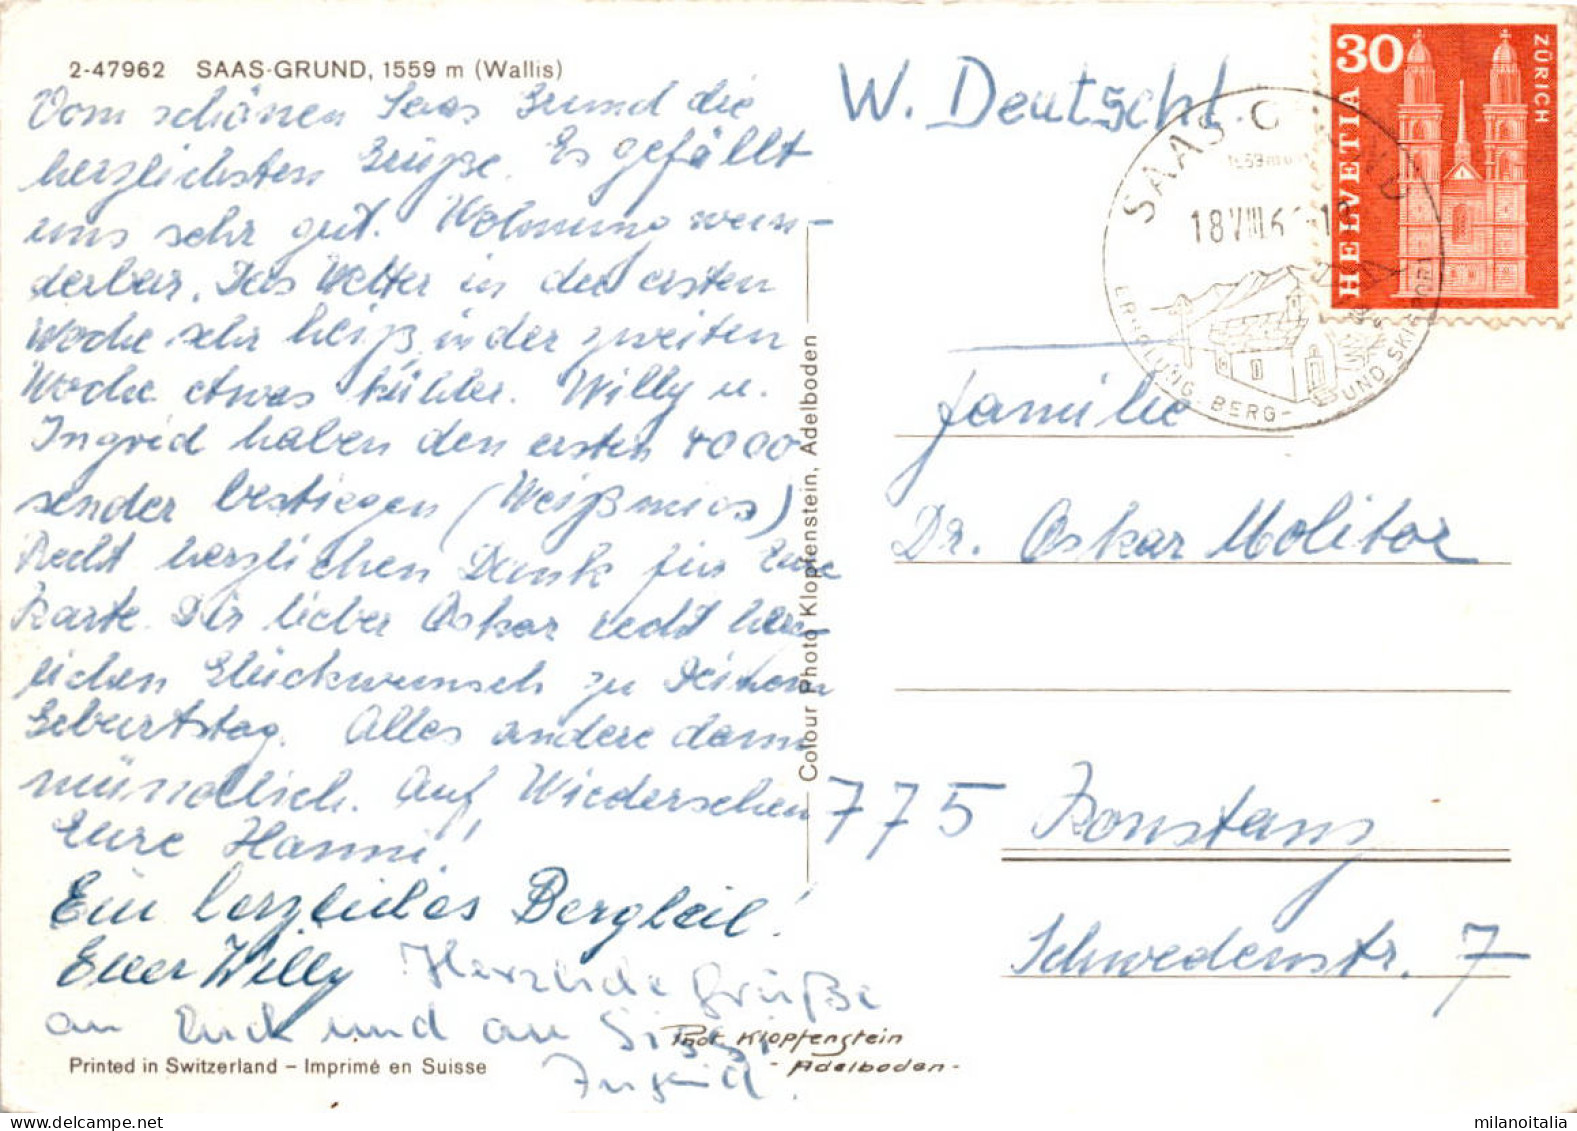 2-47962 SAAS-GRUND, 1559 m (Wallis)
Vom schönen Saas Grund die
herzlichsten Grüße. Es gefällt
uns sehr gut. Wohnung wun-
derbar. Das Wetter in der ersten
Woche sehr heiß, in der zweiten
Woche etwas kühler. Willy u.
Ingrid haben den ersten 4000
sender bestiegen (Weißmies)
Recht herzlichen Dank für Eure
Karte. Dir lieber Oskar recht herz-
lichen Glückwunsch zu Deinem
Geburtstag. Alles andere dann
mündlich. Auf Wiedersehen
Eure Hanni!
Ein herzliches Bergheil!
Euer Willy
Herzliche Grüße
an Euch und an Sissi
Ingrid.
Printed in Switzerland – Imprimé en Suisse
Phot. Klopfenstein
- Adelboden -
Colour Photo Klopfenstein, Adelboden
W. Deutschl.
SAAS-GRUND
1559 m
18.VIII.6
ERHOLUNG, BERG- UND SKISPORT
30
HELVETIA
ZÜRICH
Familie
Dr. Oskar Molitor
775 Konstanz
Schwedenstr. 7
milanoitalia